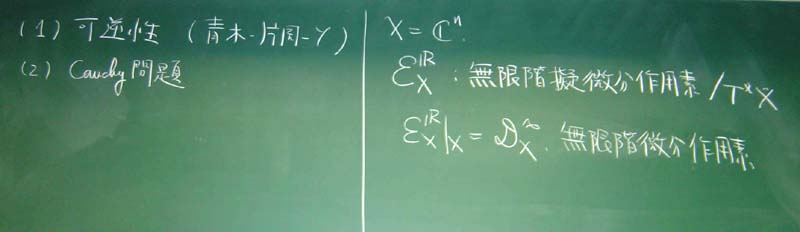 (1) 可逆性 (青木-片岡-Y)
(2) Cauchy 問題
X = ℂⁿ.
ℰ_X^ℝ : 無限階擬微分作用素 / T*X
ℰ_X^ℝ|_X = 𝒟_X^∞. 無限階微分作用素.